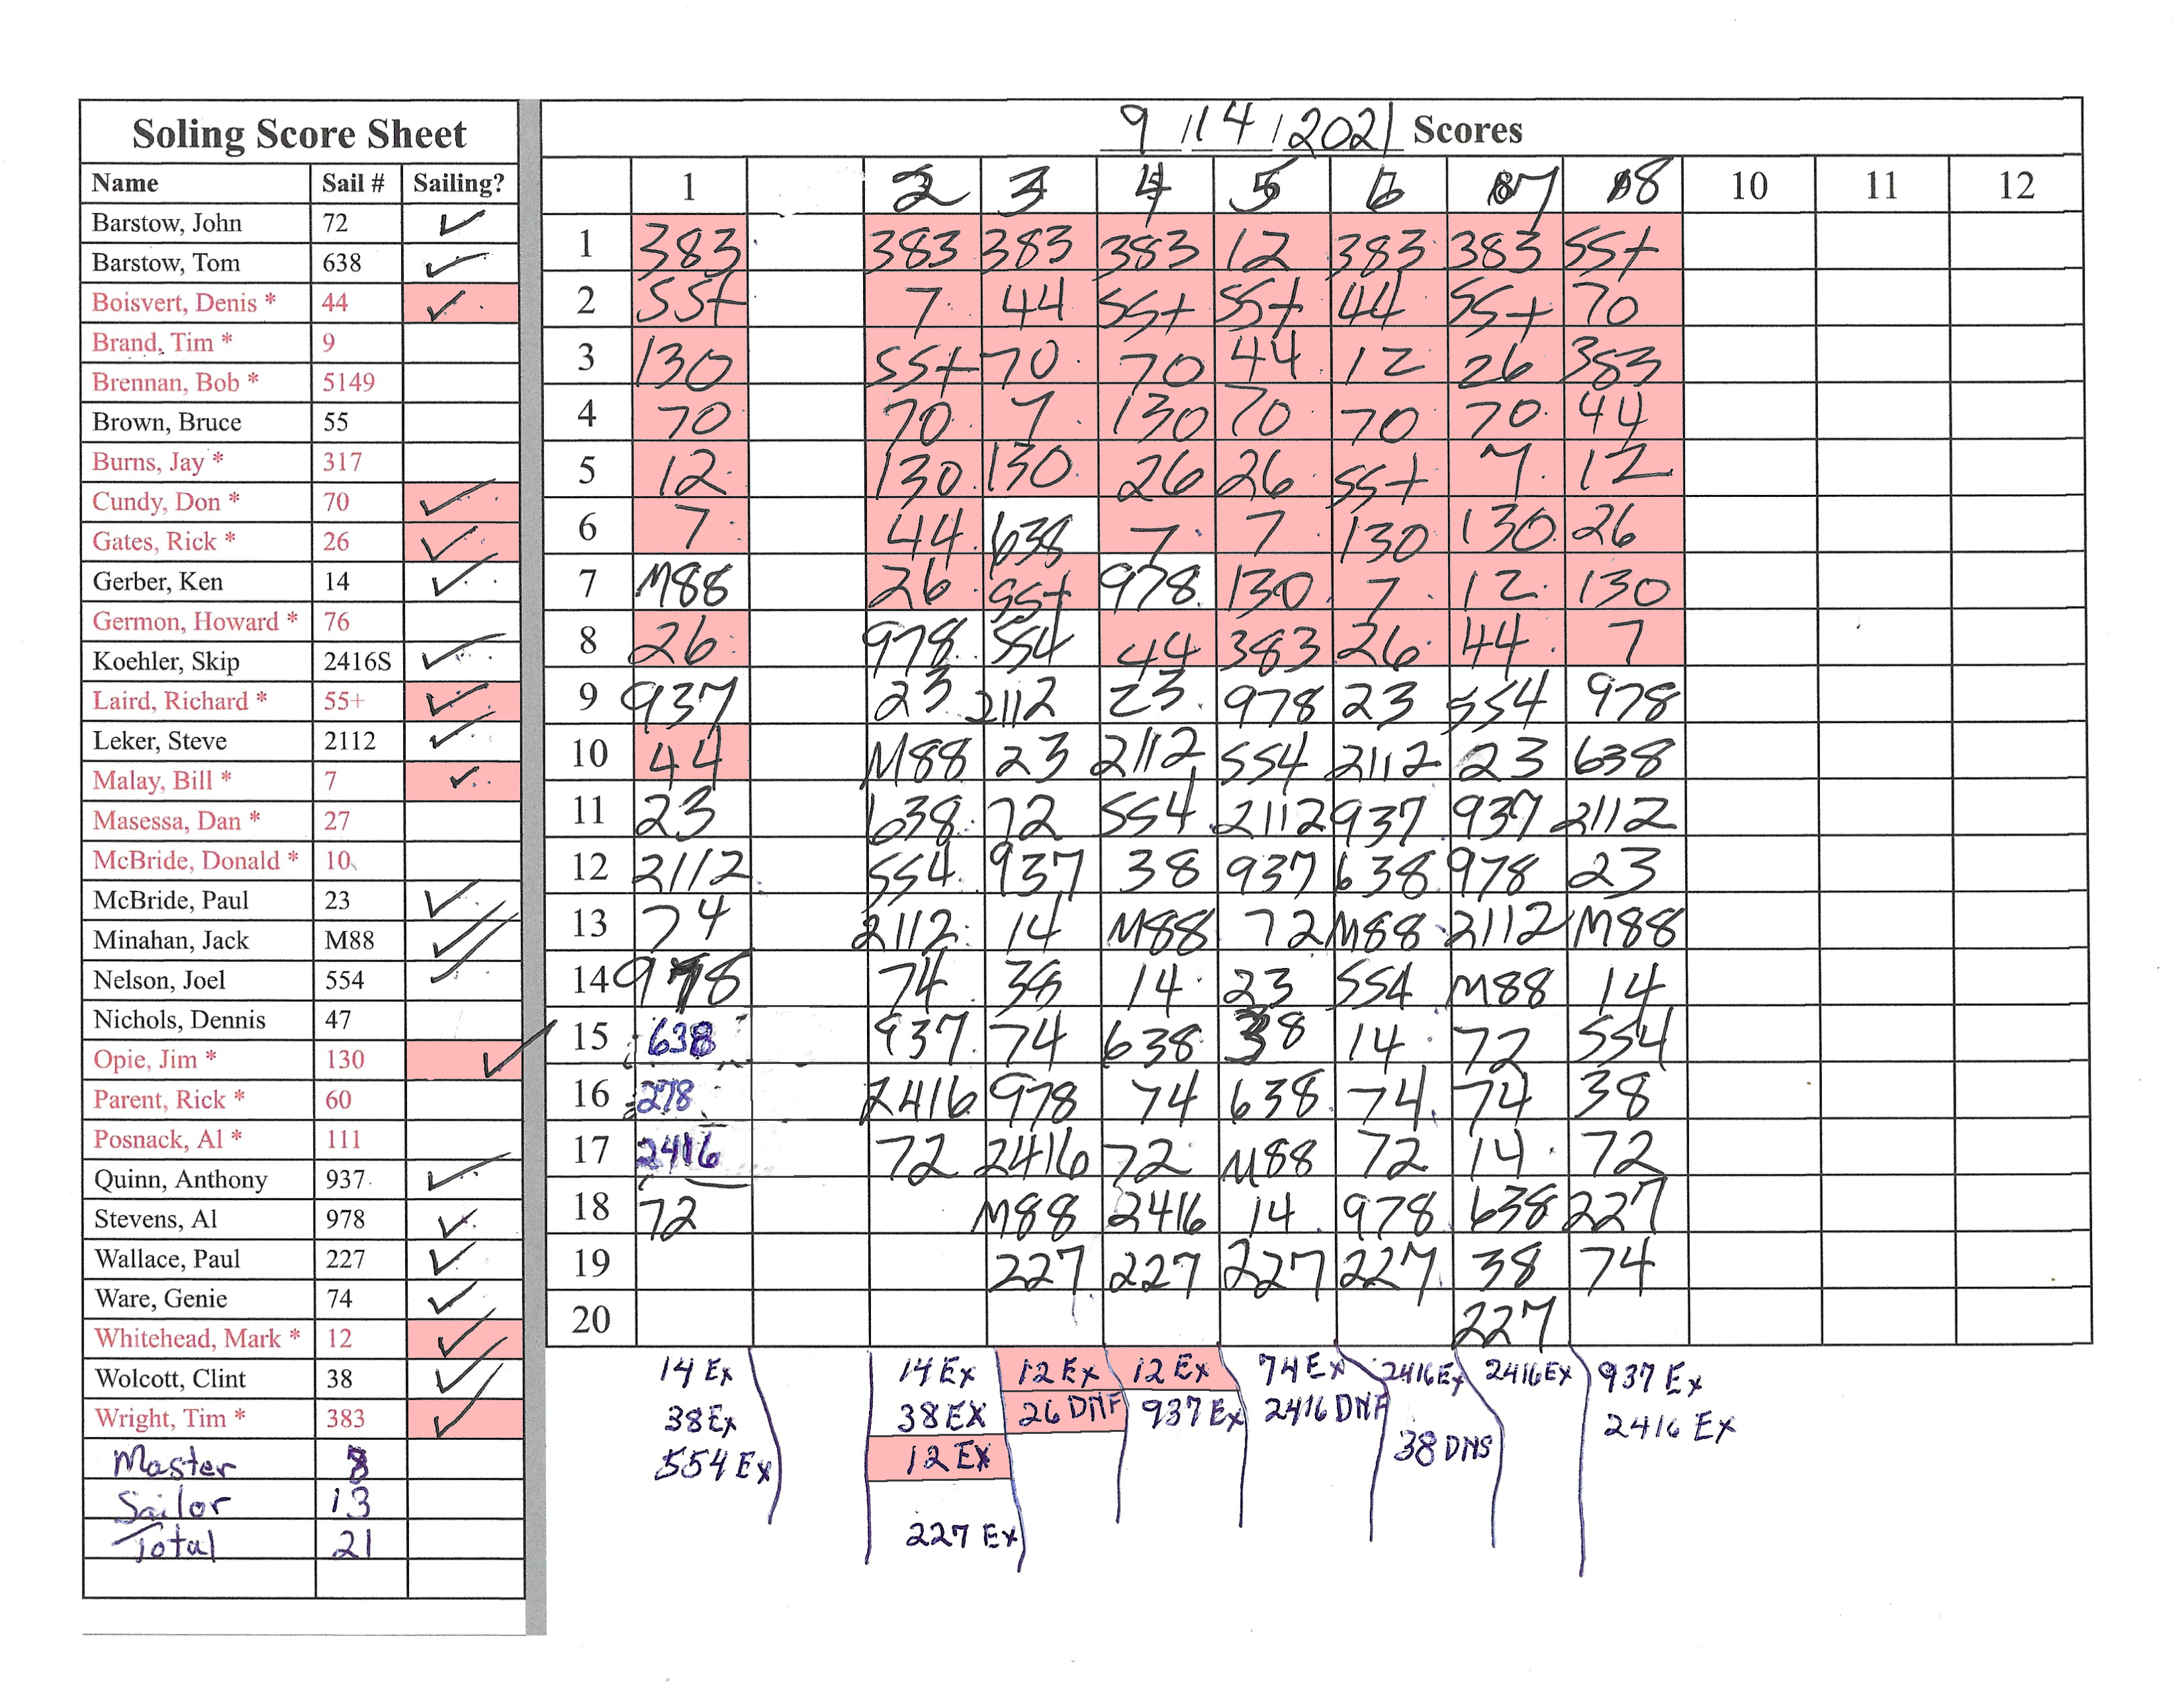 Soling Score Sheet
Name Sail # Sailing?
Barstow, John 72 ✓
Barstow, Tom 638 ✓
Boisvert, Denis * 44 ✓
Brand, Tim * 9
Brennan, Bob * 5149
Brown, Bruce 55
Burns, Jay * 317
Cundy, Don * 70 ✓
Gates, Rick * 26 ✓
Gerber, Ken 14 ✓
Germon, Howard * 76
Koehler, Skip 2416S ✓
Laird, Richard * 55+ ✓
Leker, Steve 2112 ✓
Malay, Bill * 7 ✓
Masessa, Dan * 27
McBride, Donald * 10
McBride, Paul 23 ✓
Minahan, Jack M88 ✓
Nelson, Joel 554 ✓
Nichols, Dennis 47
Opie, Jim * 130 ✓
Parent, Rick * 60
Posnack, Al * 111
Quinn, Anthony 937 ✓
Stevens, Al 978 ✓
Wallace, Paul 227 ✓
Ware, Genie 74 ✓
Whitehead, Mark * 12 ✓
Wolcott, Clint 38 ✓
Wright, Tim * 383 ✓
Master 8
Sailor 13
Total 21
9/14/2021 Scores
1 2 3 4 5 6 7 8 10 11 12
1 383 383 383 383 12 383 383 55+
2 55+ 7 44 55+ 55+ 44 55+ 70
3 130 55+ 70 70 44 12 26 383
4 70 70 7 130 70 70 70 44
5 12 130 130 26 26 55+ 7 12
6 7 44 638 7 7 130 130 26
7 M88 26 55+ 978 130 7 12 130
8 26 978 554 44 383 26 44 7
9 937 23 2112 23 978 23 554 978
10 44 M88 23 2112 554 2112 23 638
11 23 638 72 554 2112 937 937 2112
12 2112 554 937 38 937 638 978 23
13 74 2112 14 M88 72 M88 2112 M88
14 978 74 38 14 23 554 M88 14
15 638 937 74 638 38 14 72 554
16 278 2416 978 74 638 74 74 38
17 2416 72 2416 72 M88 72 14 72
18 72 M88 2416 14 978 638 227
19 227 227 227 227 38 74
20 227
14 Ex 14 Ex 12 Ex 12 Ex 74 Ex 2416 Ex 2416 Ex 937 Ex
38 Ex 38 EX 26 DNF 937 Ex 2416 DNF 38 DNS 2416 Ex
554 Ex 12 EX
227 Ex